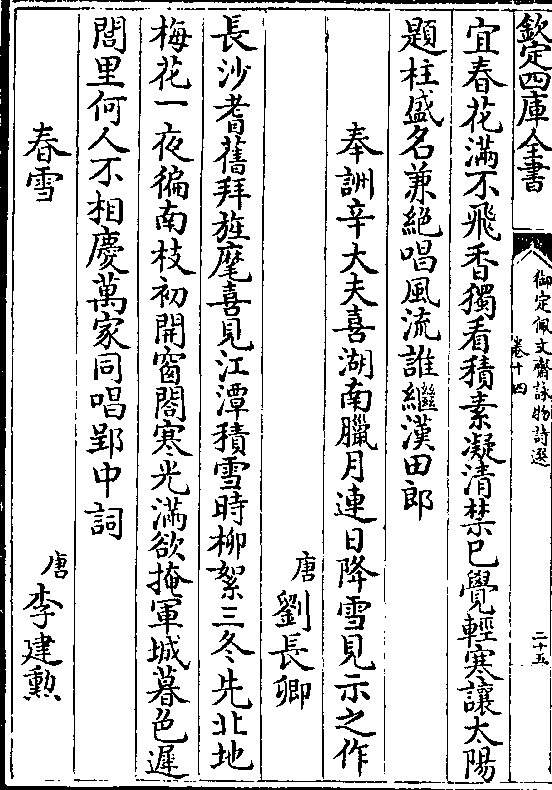 欽定四庫全書
御定佩文齋詠物詩選
卷十四
二十五
宜春花滿不飛香獨看積素凝清禁已覺輕寒讓太陽
題柱盛名兼絕唱風流誰繼漢田郎
奉詶辛大夫喜湖南臘月連日降雪見示之作
唐劉長卿
長沙耆舊拜旌麾喜見江潭積雪時柳絮三冬先北地
梅花一夜徧南枝初開窗閣寒光滿欲掩軍城暮色遲
閭里何人不相慶萬家同唱郢中詞
春雪
唐李建勲